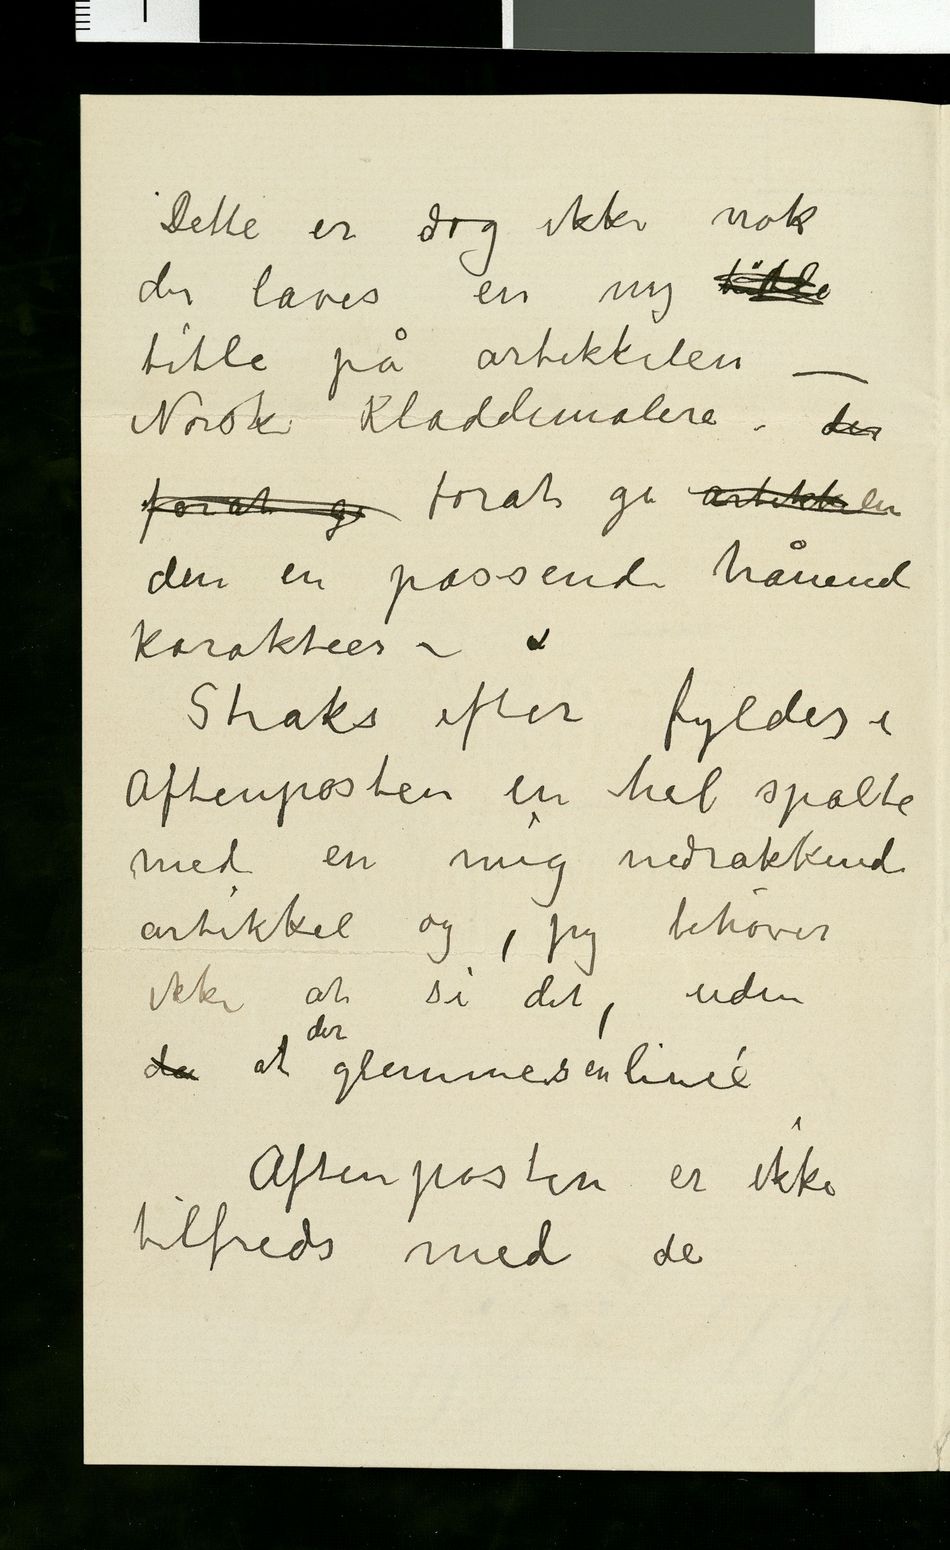 Dette er dog ikke nok
der laves en ny title
title på artikkelen –
Norsk Kladdemalere. der
forat ge forat ge artikkelen
den en passende hånend
karakteer –
Straks efter fyldes i
Aftenposten en hel spalte
med en mig nedrakkende
artikkel og, jeg behøver
ikke at si det, uden
da at der glemmes en linie
Aftenposten er ikke
tilfreds med de